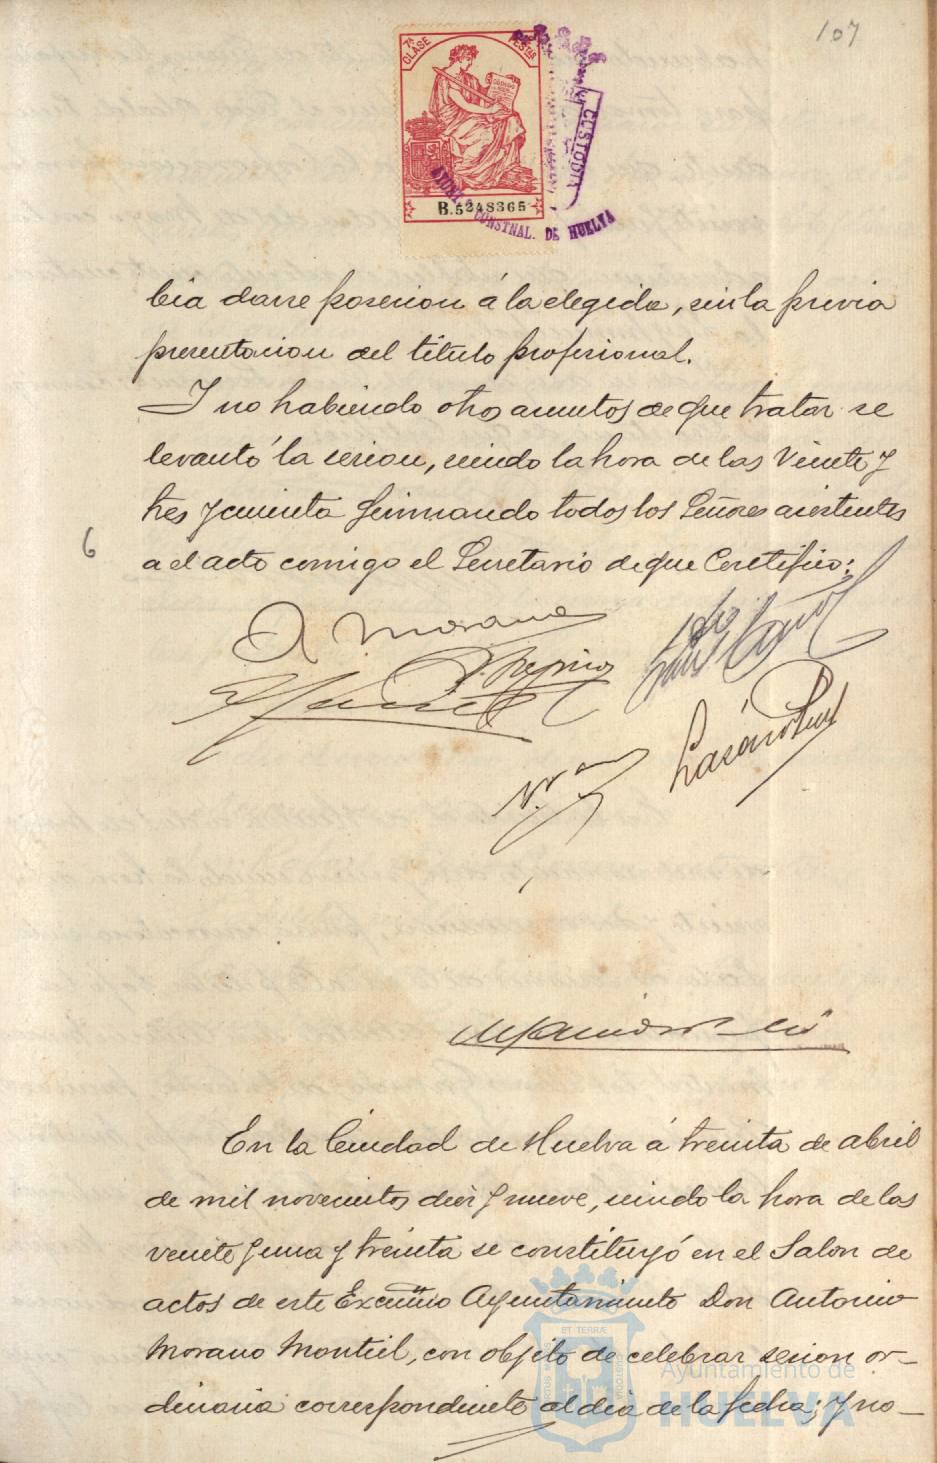 107
7ª CLASE
PESETAS
B.5248365
CUSTODIA
AYUNT. CONSTNAL. DE HUELVA
bia darse posesion á la elegida, sin la previa
presentacion del titulo profesional.
Y no habiendo otros asuntos de que tratar se
levantó la sesion, siendo la hora de las veinte y
tres y cuenta firmando todos los Señores asistentes
a el acto comigo el Secretario de que Certifico:
6
A Morano
Lázaro
En la Ciudad de Huelva á treinta de abril
de mil novecientos diez y nueve, siendo la hora de las
veinte y una y treinta se constituyó en el Salon de
actos de este Excmo Ayuntamiento Don Antonio
Morano Montiel, con objeto de celebrar sesion or-
dinaria correspondiente al dia de la fecha; y no-
ET TERRÆ
Ayuntamiento de
HUELVA